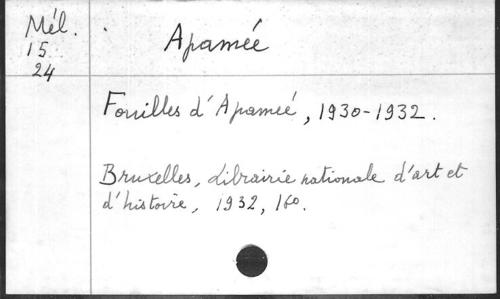 Mél.
15
24
Apamée
Fouilles d'Apameé, 1930-1932.
Bruxelles, Librairie nationale d'art et
d'histoire, 1932, 16º.